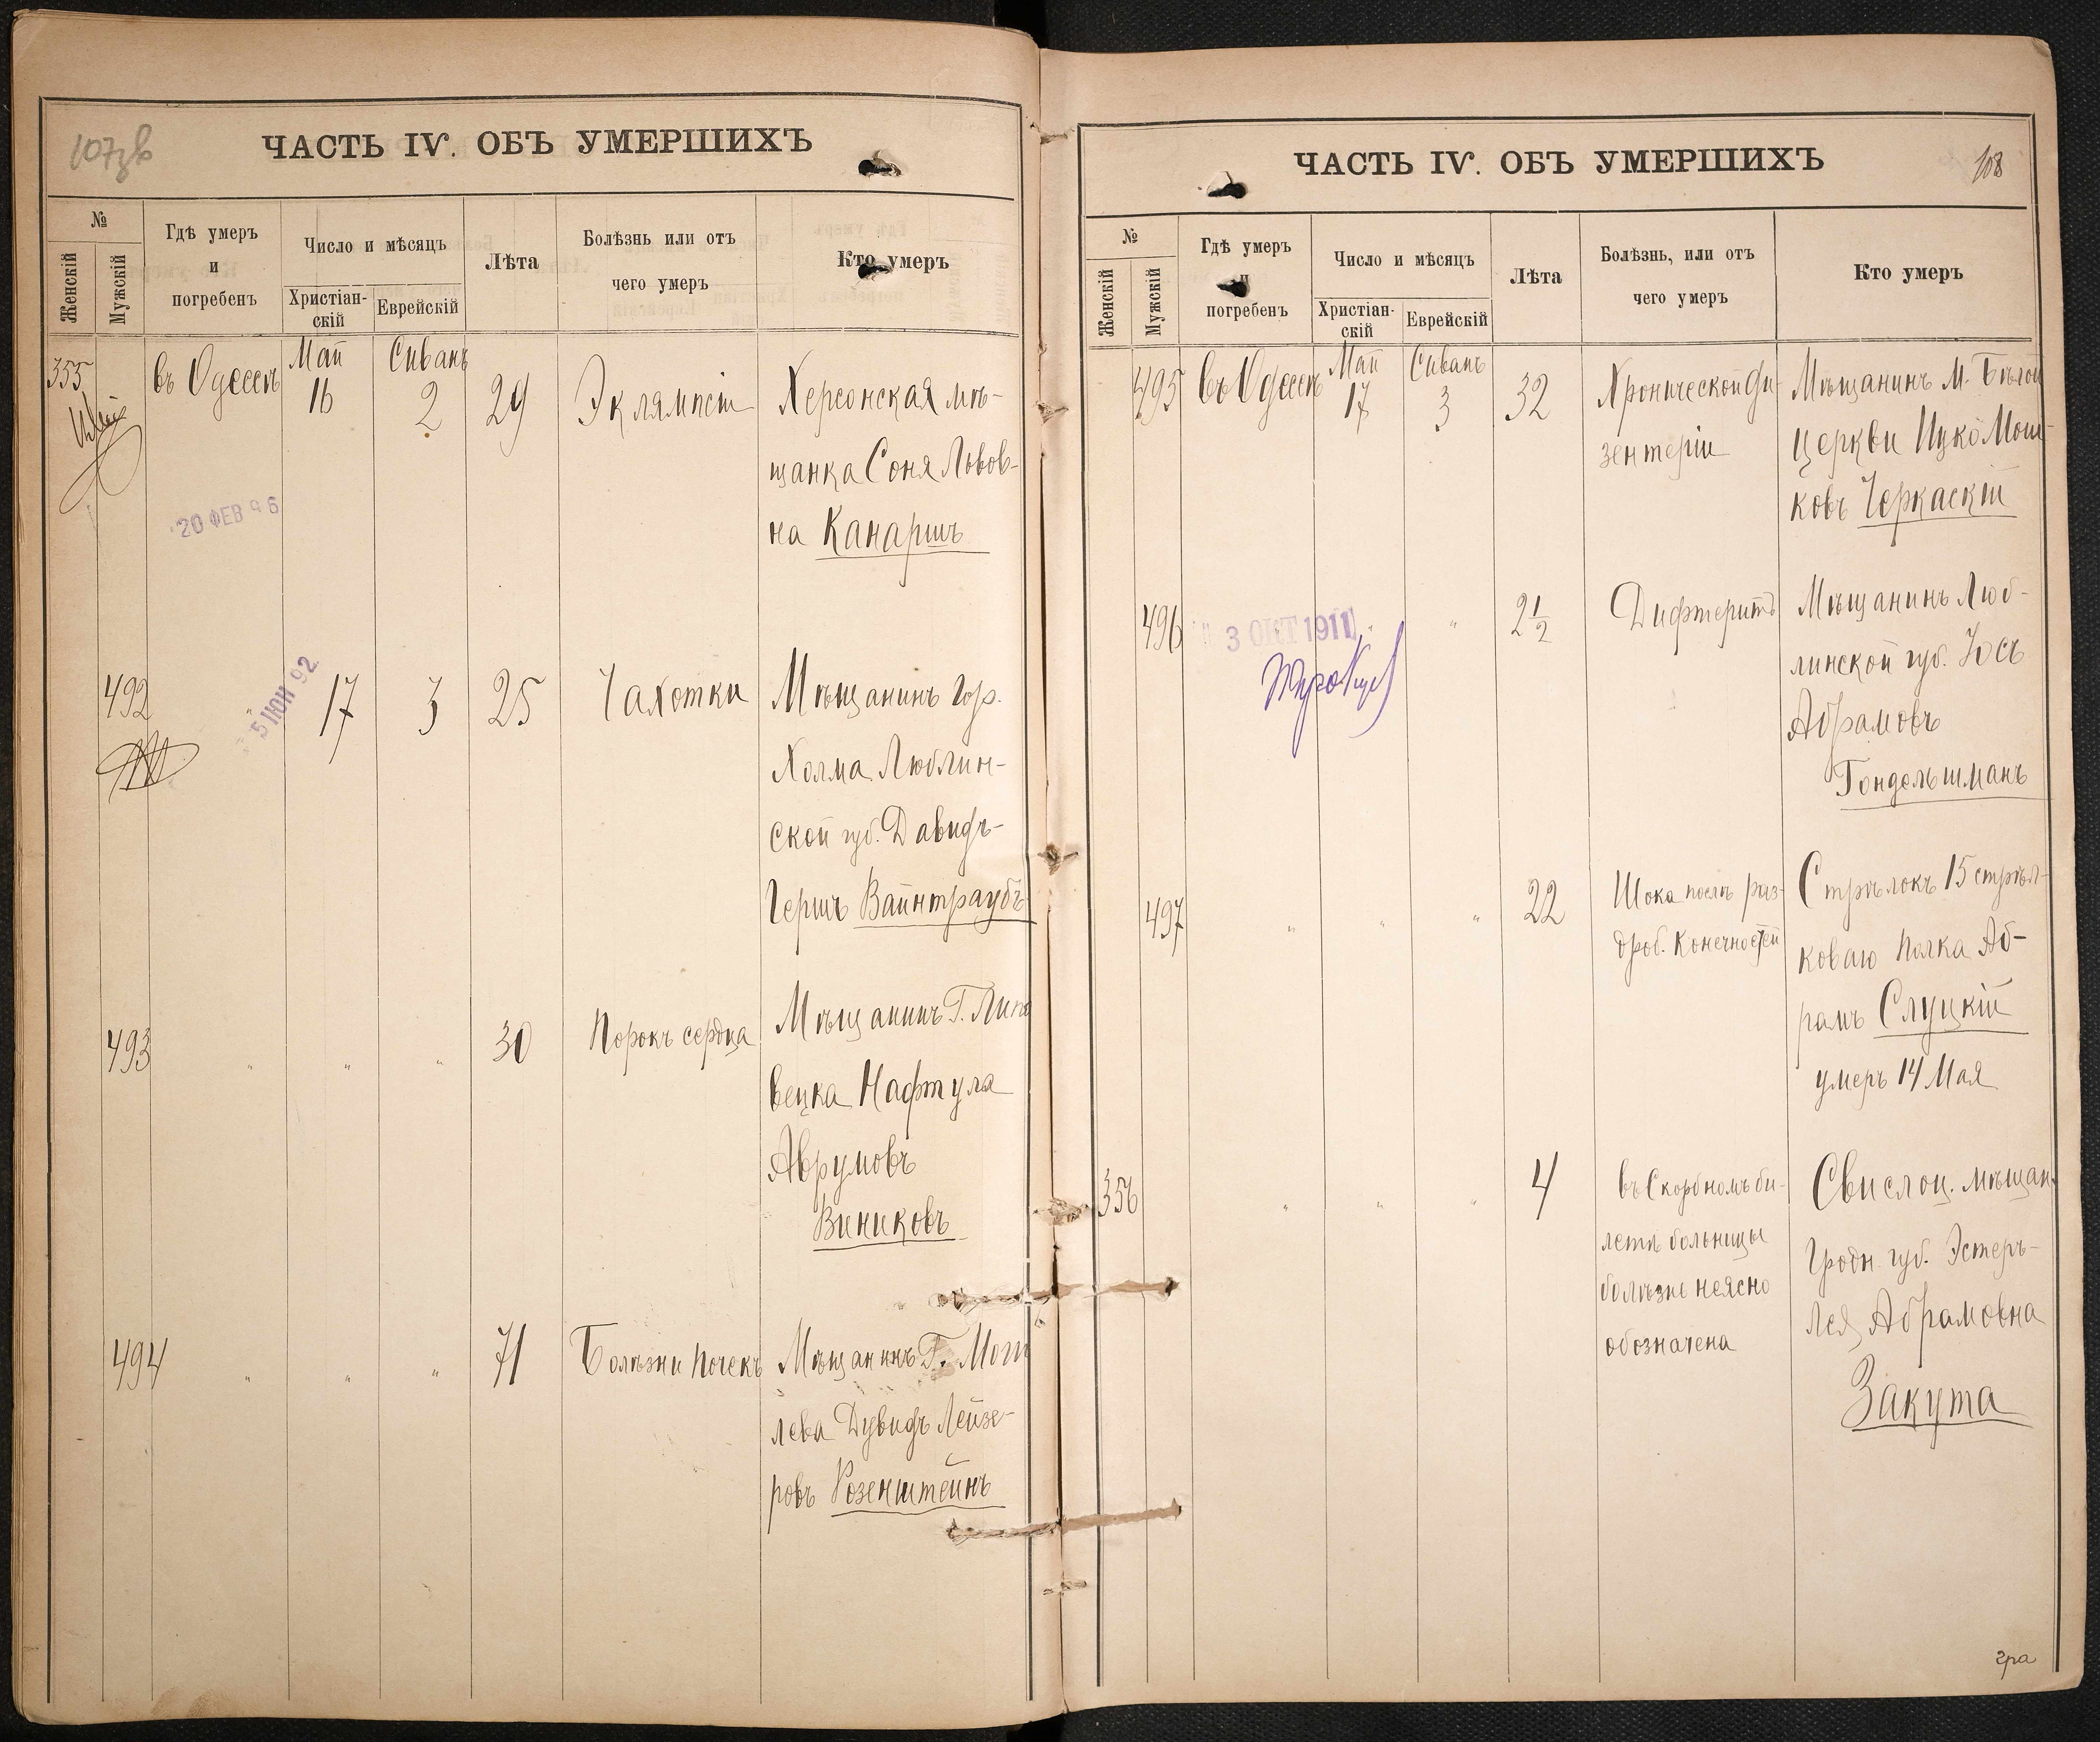 107 зв
ЧАСТЬ IV. ОБЪ УМЕРШИХЪ
№
Женскій
Мужскій
Гдѣ умеръ
и
погребенъ
Число и мѣсяцъ
Христіан-
скій
Еврейскій
Лѣта
Болѣзнь или отъ
чего умеръ
Кто умеръ
355
въ Одессѣ
Май
16
Сиванъ
2
29
Эклямпсіи
Херсонская мѣ-
щанка Соня Львов-
на Канаршъ
20 ФЕВ 96
492
"
5 ІЮН 92
17
3
25
Чахотки
Мѣщанинъ гор.
Холма Люблин-
ской губ. Давидъ-
Гершъ Вайнтраубъ
493
"
"
"
30
Порокъ сердца
Мѣщанинъ Г. Липо
вецка Нафтула
Аврумовъ
Виниковъ
494
"
"
"
71
Болѣзни почекъ
Мѣщанинъ Г. Моги
лева Дувидъ Лейзе-
ровъ Розенштейнъ
ЧАСТЬ IV. ОБЪ УМЕРШИХЪ
108
№
Женскій
Мужскій
Гдѣ умеръ
и
погребенъ
Число и мѣсяцъ
Христіан-
скій
Еврейскій
Лѣта
Болѣзнь, или отъ
чего умеръ
Кто умеръ
495
въ Одессѣ
Май
17
Сиванъ
3
32
Хронической ди-
зентеріи
Мѣщанинъ М. Бѣлой
Церкви Ицко Мош-
ковъ Черкаскій
496
3 ОКТ 1911
"
"
2 1/2
Дифтеритъ
Мѣщанинъ Люб-
линской губ. Юсь
Абрамовъ
Гондельшманъ
497
"
"
"
22
Шока послѣ раз-
дроб. Конечностей
Стрѣлокъ 15 стрѣл-
коваго полка Аб-
рамъ Слуцкій
умеръ 14 Мая
356
"
"
"
4
въ Скорбномъ би-
летѣ больницы
болѣзнь неясно
обозначена
Свислоц. мѣщан.
Гродн. губ. Эстеръ-
Лея Абрамовна
Закута
гра